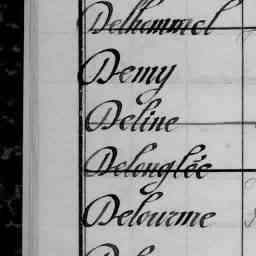 Delhommel
Demy
Deline
Delonglée
Delourme